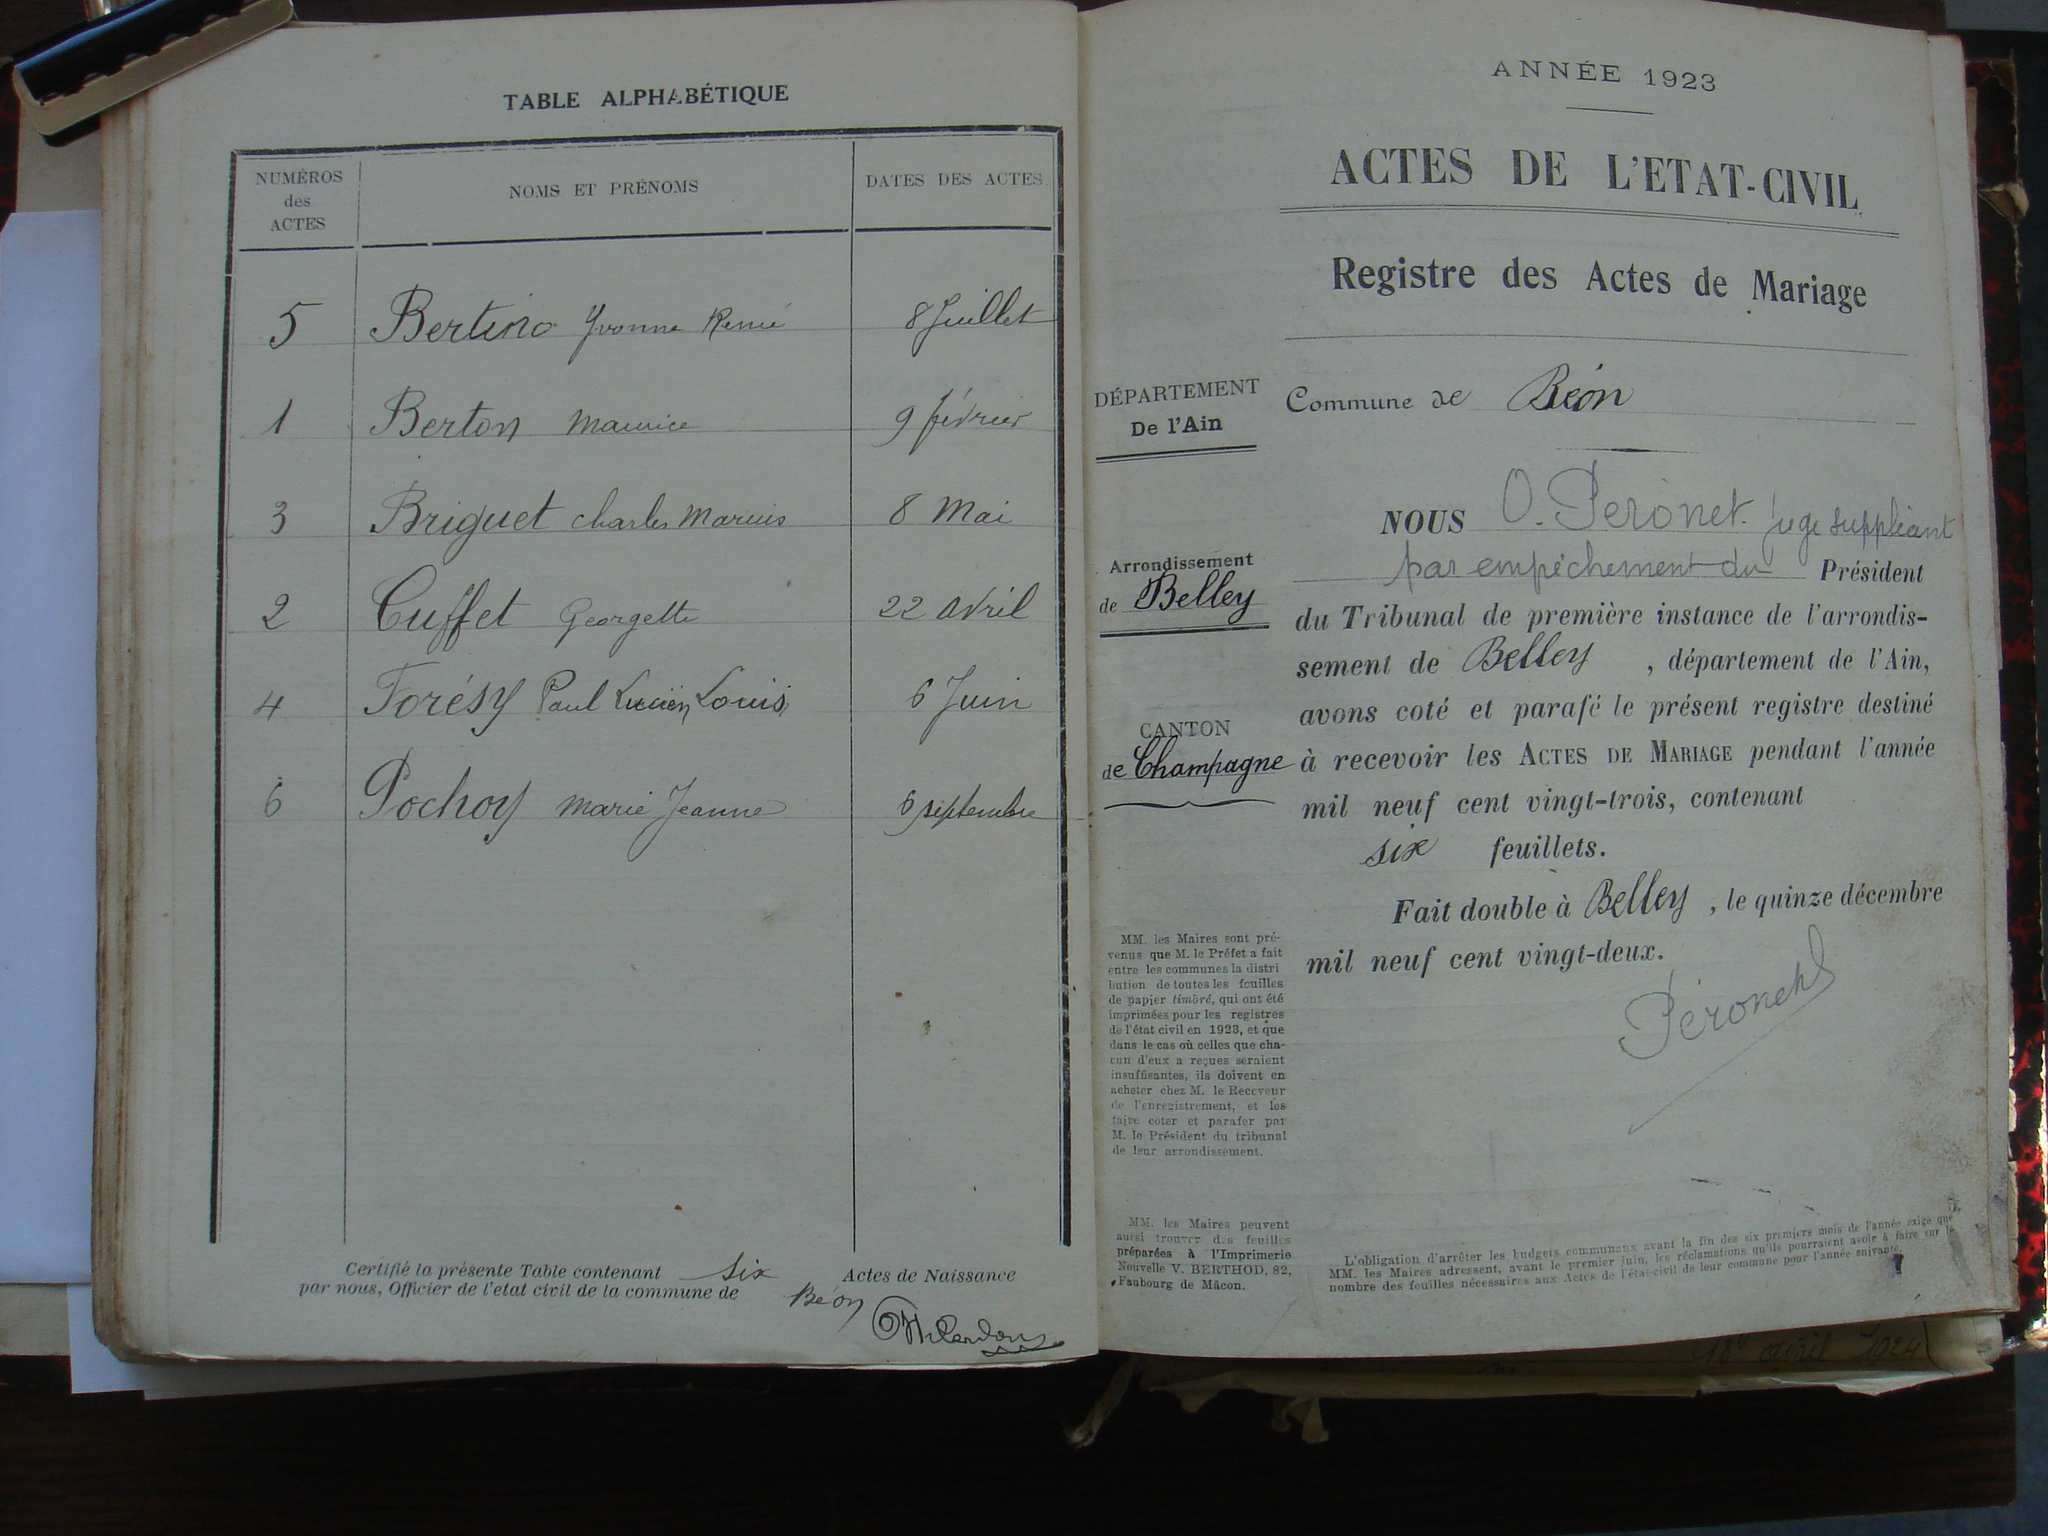 TABLE ALPHABÉTIQUE
NUMÉROS des ACTES NOMS ET PRÉNOMS DATES DES ACTES
5 Bertino Yvonne Renée 8 Juillet
1 Berton Maurice 9 février
3 Briguet Charles Marius 8 Mai
2 Cuffet Georgette 22 avril
4 Forésy Paul Lucien Louis 6 Juin
6 Pochoy Marie Jeanne 6 septembre
Certifié la présente Table contenant six Actes de Naissance
par nous, Officier de l'etat civil de la commune de Béon
ANNÉE 1923
ACTES DE L'ETAT-CIVIL
Registre des Actes de Mariage
DÉPARTEMENT
De l'Ain
Commune de Béon
Arrondissement
de Belley
CANTON
de Champagne
NOUS O. Péronet juge suppléant
par empêchement du Président
du Tribunal de première instance de l'arrondis-
sement de Belley, département de l'Ain,
avons coté et parafé le présent registre destiné
à recevoir les ACTES DE MARIAGE pendant l'année
mil neuf cent vingt-trois, contenant
six feuillets.
Fait double à Belley, le quinze décembre
mil neuf cent vingt-deux.
Péronet
MM. les Maires sont pré-
venus que M. le Préfet a fait
entre les communes la distri
bution de toutes les feuilles
de papier timbré, qui ont été
imprimées pour les registres
de l'état civil en 1923, et que
dans le cas où celles que cha-
cun d'eux a reçues seraient
insuffisantes, ils doivent en
acheter chez M. le Receveur
de l'enregistrement, et les
faire coter et parafer par
M. le Président du tribunal
de leur arrondissement.
MM. les Maires peuvent
aussi trouver des feuilles
préparées à l'Imprimerie
Nouvelle V. BERTHOD, 82,
Faubourg de Mâcon.
L'obligation d'arrêter les budgets communaux avant la fin des six premiers mois de l'année exige que
MM. les Maires adressent, avant le premier juin, les réclamations qu'ils pourraient avoir à faire sur le
nombre des feuilles nécessaires aux Actes de l'état-civil de leur commune pour l'année suivante.
18 avril 1924